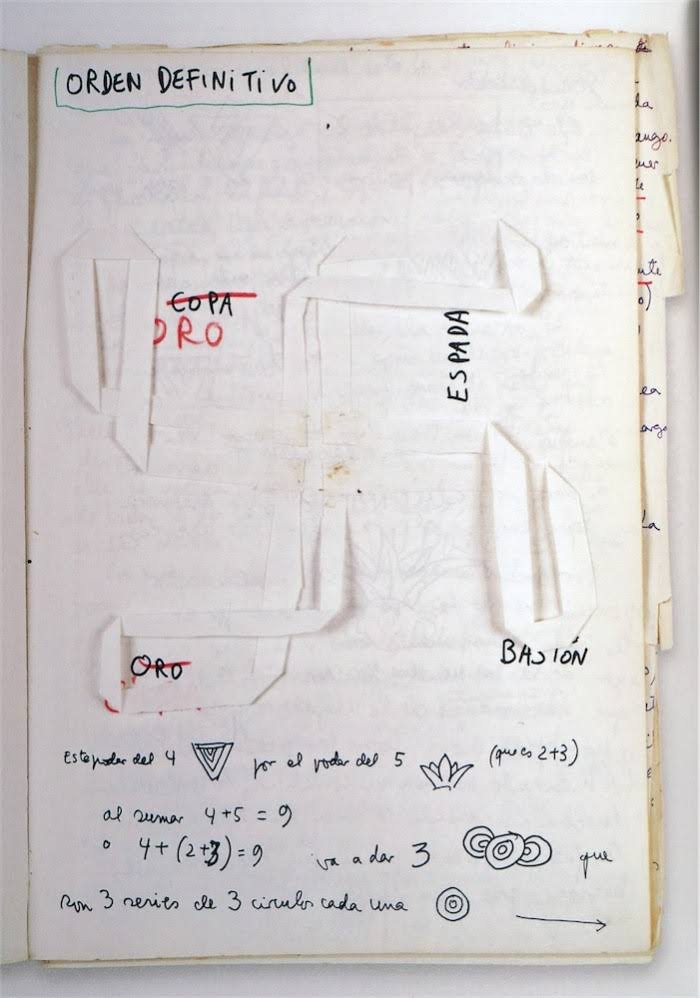 ORDEN DEFINITIVO
COPA
ORO
ESPADA
ORO
BASTÓN
Este poder del 4 por el poder del 5 (que es 2+3)
al sumar 4+5 = 9
o 4+(2+3)=9 va a dar 3 que
son 3 series de 3 circulos cada una
da
ango.
ente
ea
argo
La